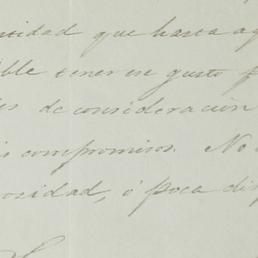 ntidad que hasta aq
ible tener un gusto p
es de consideracion
is compromisos. No
rosidad, ó poca dis